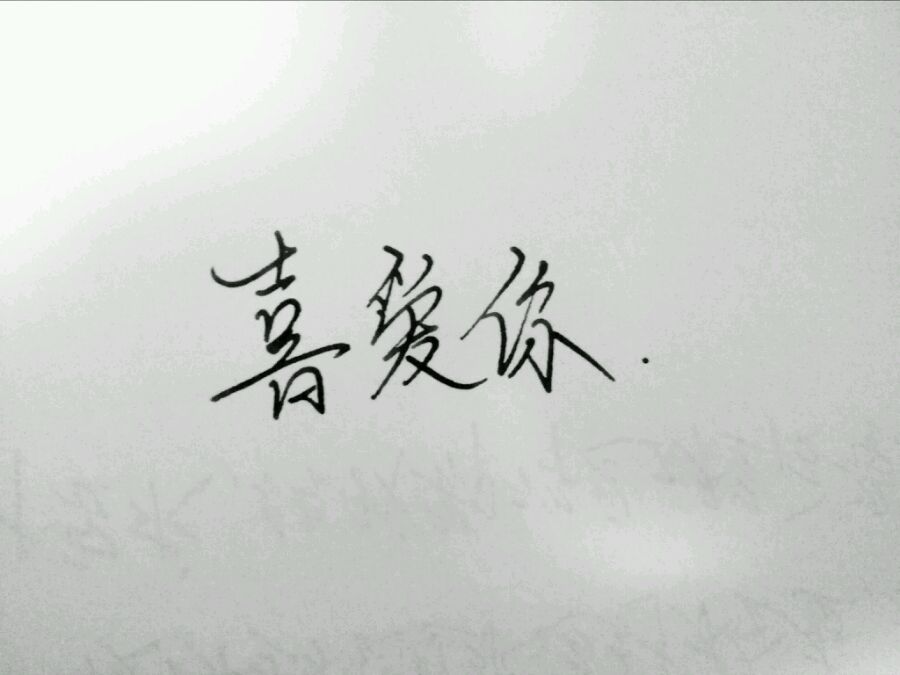 喜爱你.